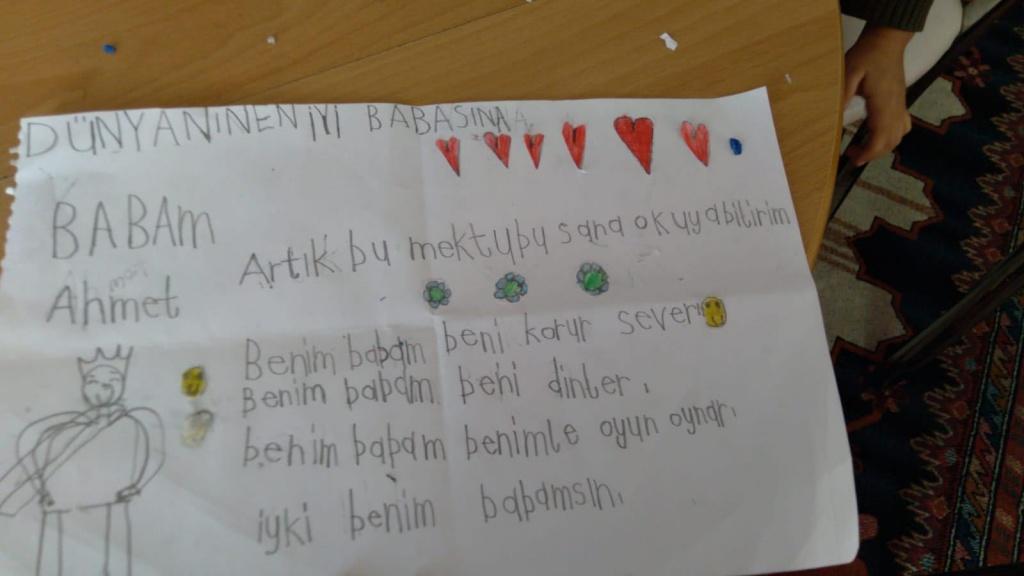 DÜNYANINEN İYİ BABASINA
BABAm
Artık bu mektubu sana okuyabilirim
Ahmet
Benim babam beni korur sever
Benim babam beni dinler.
benim babam benimle oyun oynar.
iyki benim babamsın.